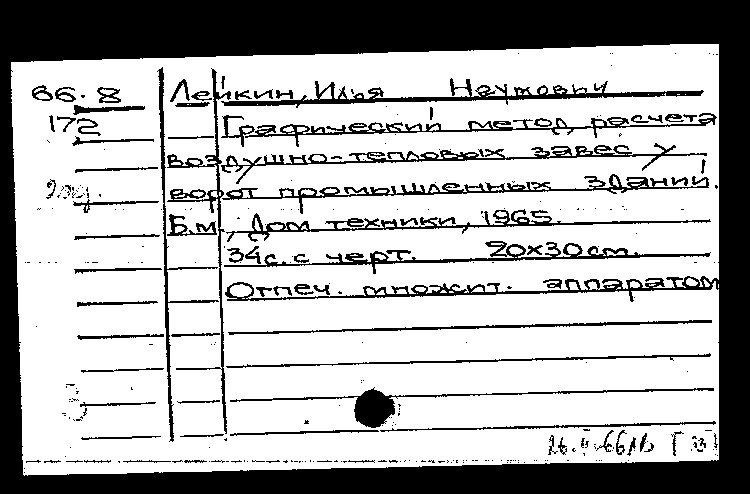 66.8 Лейкин, Илья Наумович
172 Графический метод расчета
воздушно-тепловых завес у
ворот промышленных зданий.
Б.м., Дом техники, 1965.
34с. с черт. 20х30см.
Отпеч. множит. аппаратом
3